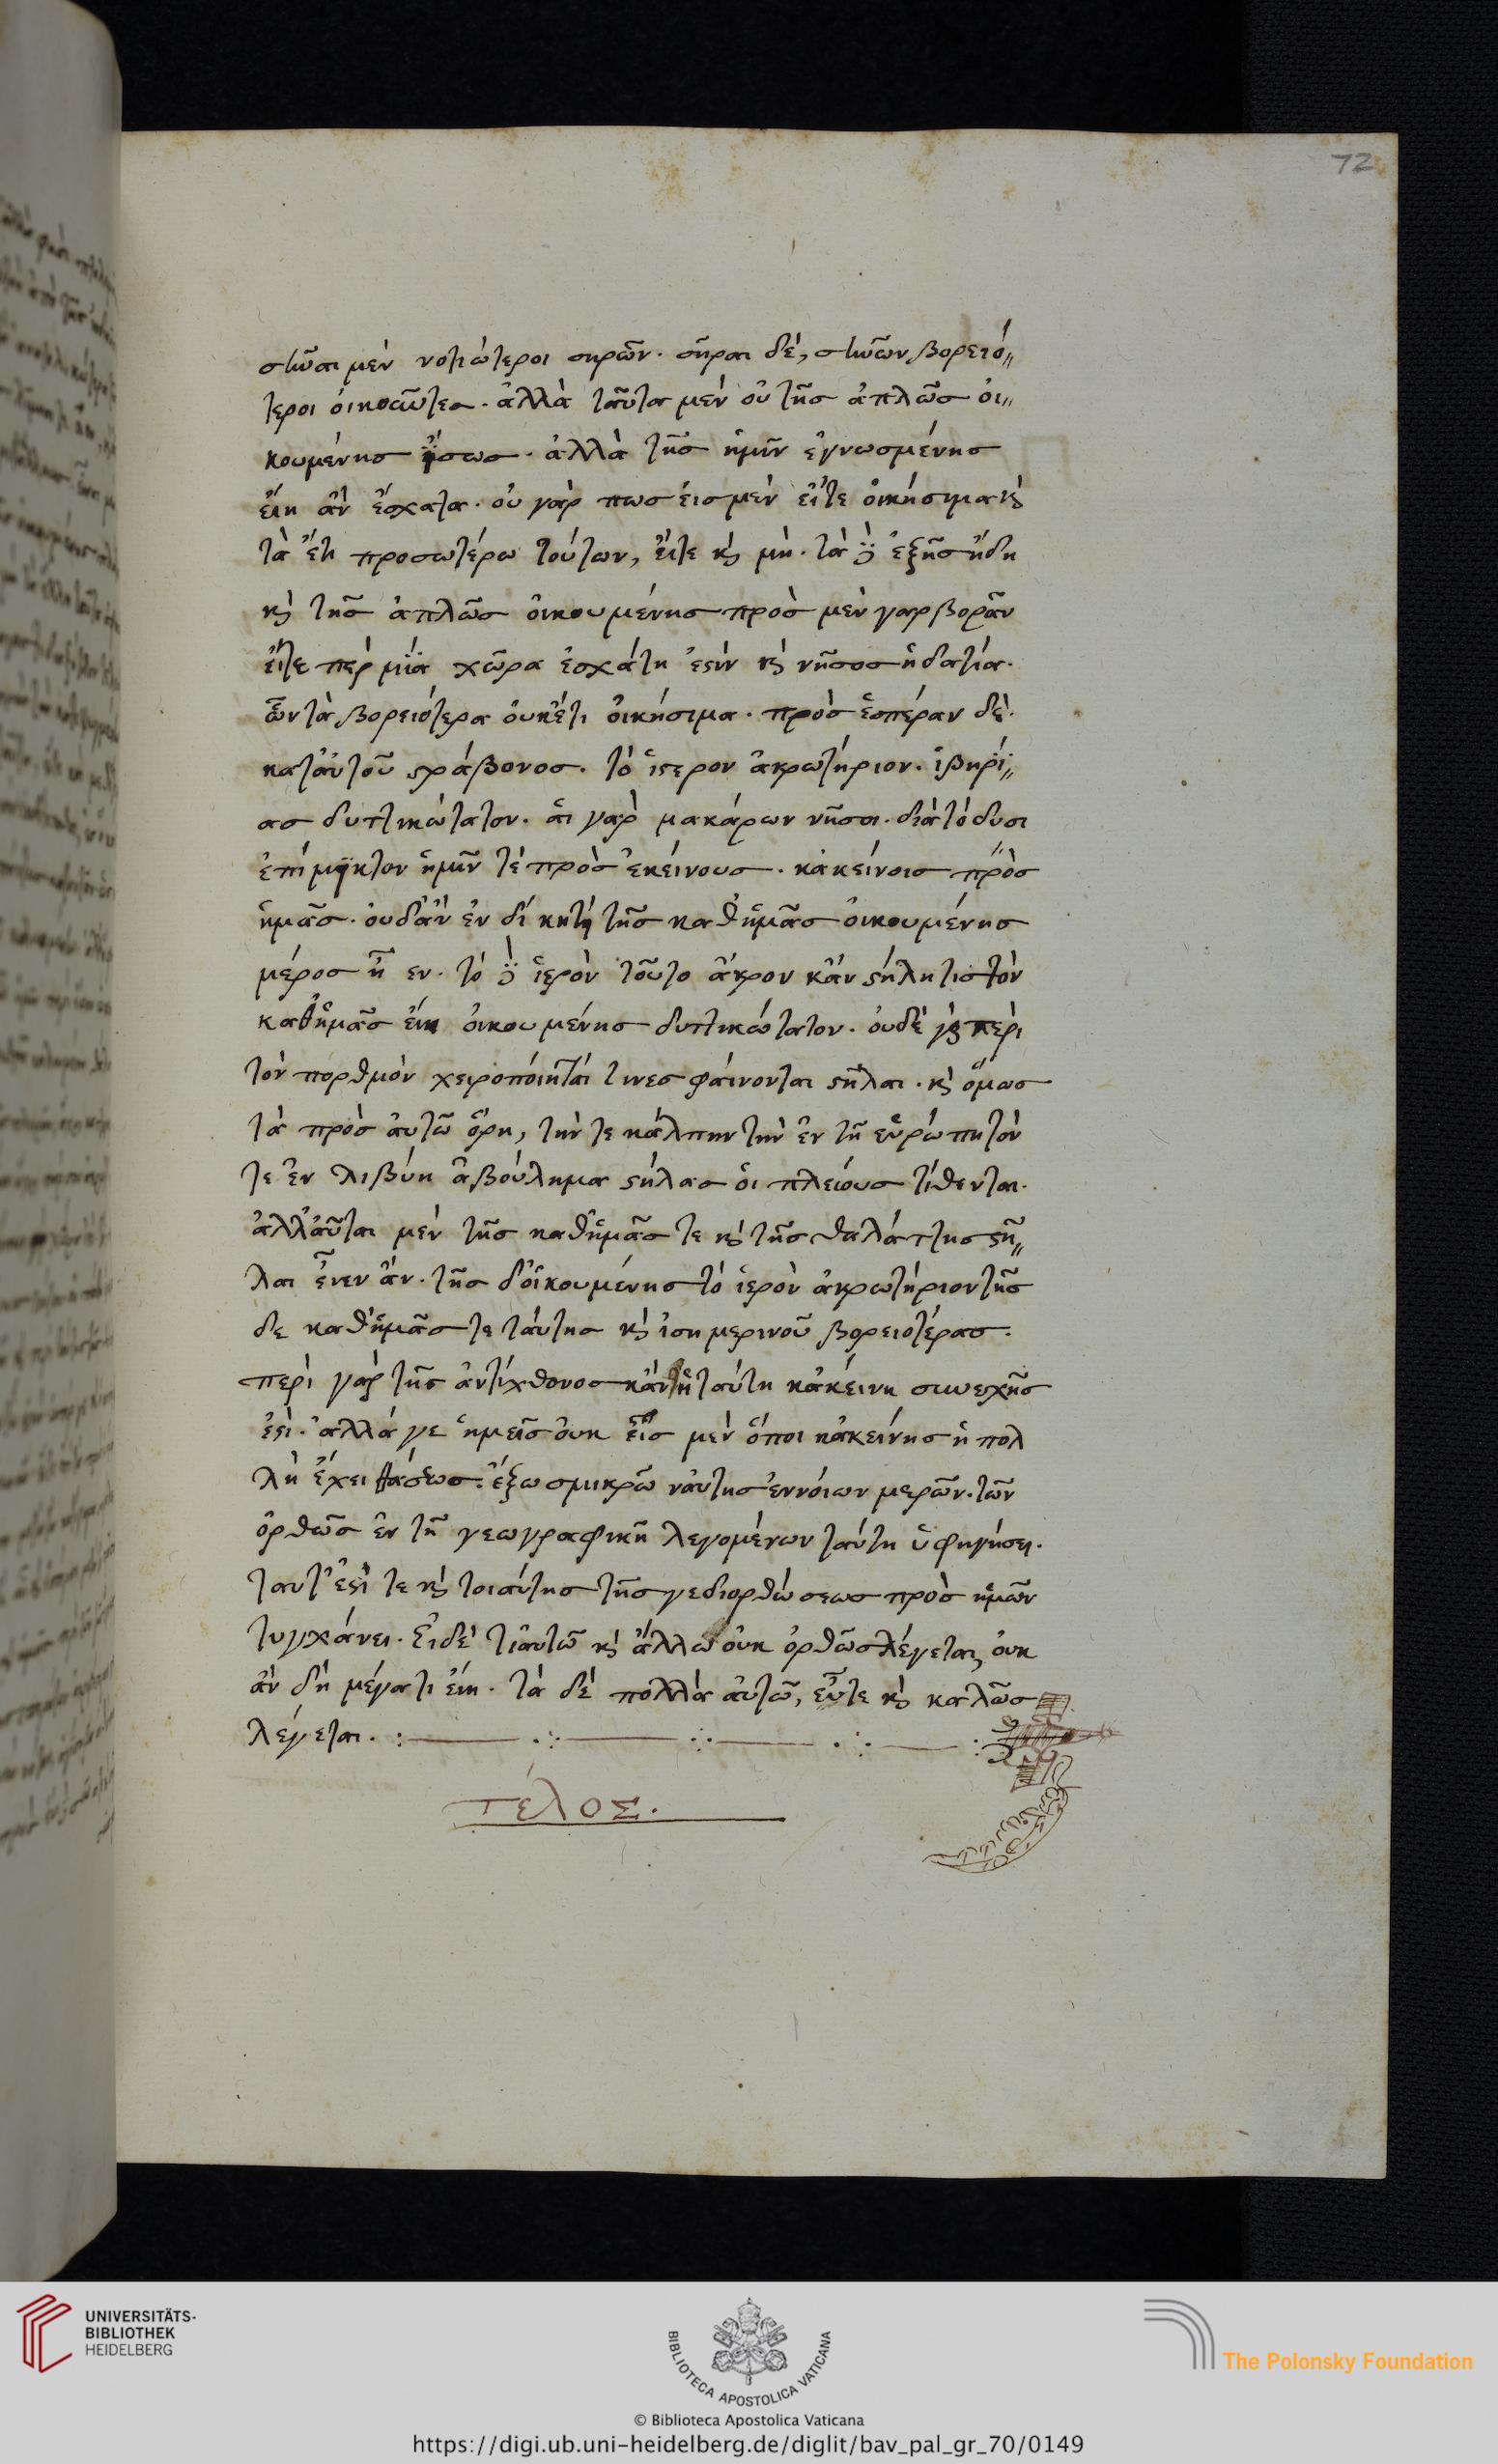 72
σῖναι μὲν νοτιώτεροι σηρῶν. σῆραι δὲ, σινῶν βορειό〃
τεροι οἰκοῦντες. ἀλλὰ ταῦτα μὲν οὐ τῆς ἀπλῶς οἰ〃
κουμένης ἴσως. ἀλλὰ τῆς ἡμῖν ἐγνωσμένης
εἴη ἂν ἔσχατα. οὐ γάρ πως ἐισμὲν εἴτε ὀικήσιμα κ̀
τὰ ἔτι προσωτέρω τούτων, ἔιτε κ̀ μὴ. τὰ δ̀ ἑξῆς ἤδη
κ̀ τῆς ἀπλῶς ὀικουμένης πρὸς μὲν γαρ βορᾶν
ἔιτε περ μία χώρα ἐσχάτη ἐστὶν κ̀ νῆσος ἡ δατία.
ὧν τὰ βορειότερα ὀυκέτι ὀικήσιμα. πρὸς ἑσπέραν δὲ.
κατ' ἀυτοῦ στράβονος. τὸ ἱερον ἀκρωτήριον. ἰβηρί〃
ας δυτικώτατον. ἁι γὰρ μακάρων νῆσοι. διὰ τὸ δυσ
ἐπίμϋκτον ἡμῖν τὲ πρὸς ἐκείνους. κἀκείνοις πρὸς
ἡμᾶς. ὀυδ' ἂν ἐν δίκη τῃ τῆς καθ' ἡμᾶς ὀικουμένης
μέρος ἦ εν. τὸ δ̀ ἱερὸν τοῦτο ἄκρον κἂν στήλη τις τὸν
καθ' ἡμᾶς εἴη ὀικουμένης δυτικώτατον. ὀυδὲ γ̀ περὶ
τὸν πορθμὸν χειροπόιηται τινες φάινονται στῆλαι. κ̀ ὅμως
τὰ πρὸς ἀυτῶ ὄρη, τήν τε κάλπην τὴν ἐν τῆ εὐρώπη τὸν
τε ἐν λιβύη ἀβούλημα στήλας ὁι πλείους τίθενται.
ἀλλ' ἀῦται μὲν τῆς καθ' ἡμᾶς τε κ̀ τῆς θαλάττης στῆ〃
λαι ἦνεν ἂν. τῆς δ' ὀικουμένης τὸ ἱερὸν ἀκρωτήριον τῆς
δε καθ' ἡμᾶς τε τάυτης κ̀ ἰσημερινοῦ βορειοτέρας.
περὶ γὰρ τῆς ἀντίχθονος κἂν ᾖ τάυτη κἀκείνη συνεχῆς
ἐστὶ. ἀλλά γε ἡμεῖς ὀυκ εἶς μὲν ὅποι κἀκείνης ἡ πολ
λὴ ἔχει θάσεως. ἔξω σμικρῶ ν' ἀυτης ἐννόιων μερῶν. τῶν
ὀρθῶς ἐν τῆ γεωγραφικῆ λεγομένων τάυτη ὑφηγήσει.
ταυτ' ἐστί τε κ̀ τοιάυτης τῆς γεδιορθώσεως πρὸς ἡμῶν
τυγχάνει. Ει δέ τι ἀυτῶ κ̀ ἄλλω ὀυκ ὀρθῶς λέγεται, ὀυκ
ἂν δὴ μέγα τι εἴη. τὰ δὲ πολλὰ ἀυτῶ, εὖτε κ̀ καλῶς
λέγεται.
τέλος.
UNIVERSITÄTS-
BIBLIOTHEK
HEIDELBERG
BIBLIOTECA APOSTOLICA VATICANA
The Polonsky Foundation
© Biblioteca Apostolica Vaticana
https://digi.ub.uni-heidelberg.de/diglit/bav_pal_gr_70/0149